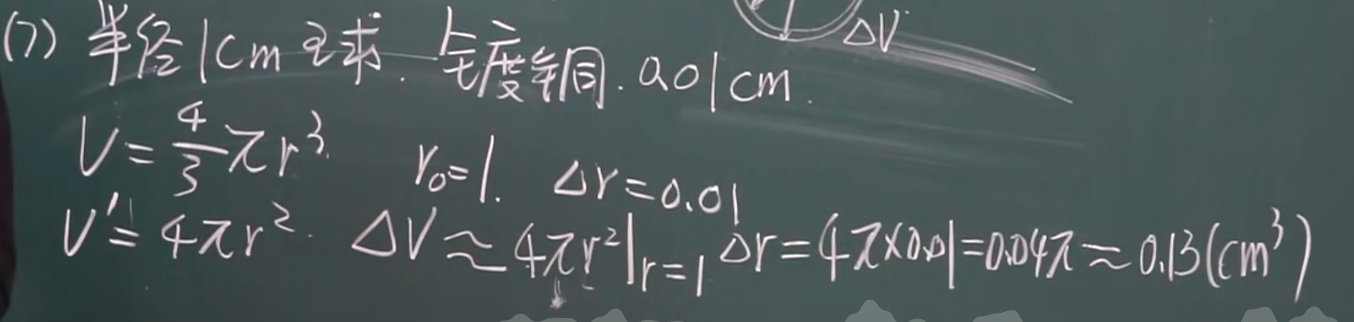 (7) 半径1cm 球. 镀铜. 0.01cm.
ΔV
V=4/3πr³ r₀=1. Δr=0.01
V'=4πr². ΔV≈4πr²|r=1 Δr=4π×0.01=0.04π≈0.13(cm³)